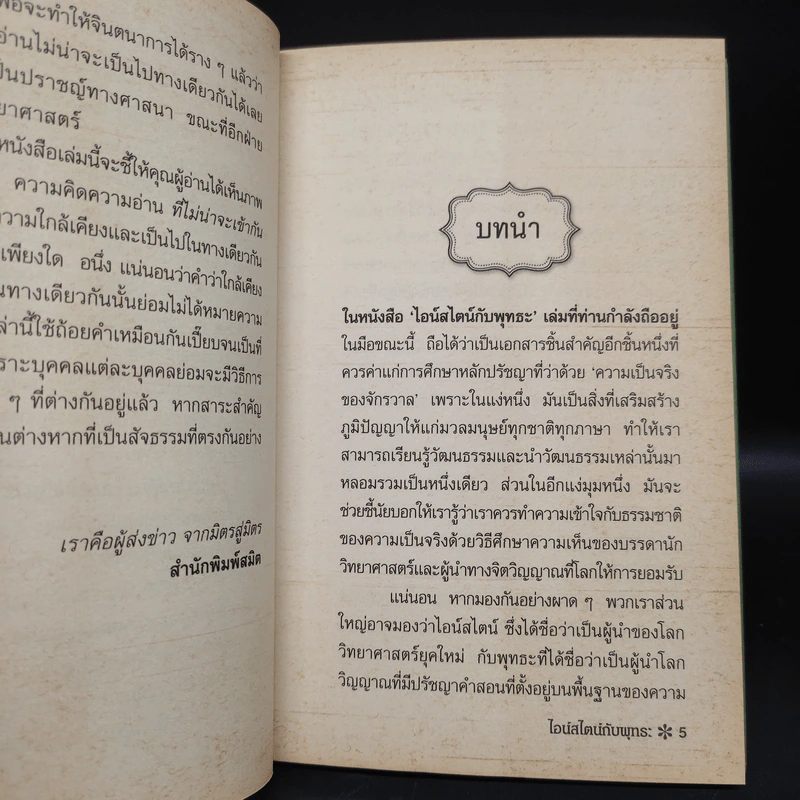 พื่อจะทำให้จินตนาการได้ราง ๆ แล้วว่า
อ่านไม่น่าจะเป็นไปทางเดียวกันได้เลย
ป็นปราชญ์ทางศาสนา ขณะที่อีกฝ่าย
ยาศาสตร์
หนังสือเล่มนี้จะชี้ให้คุณผู้อ่านได้เห็นภาพ
ความคิดความอ่าน ที่ไม่น่าจะเข้ากัน
วามใกล้เคียงและเป็นไปในทางเดียวกัน
เพียงใด อนึ่ง แน่นอนว่าคำว่าใกล้เคียง
นทางเดียวกันนั้นย่อมไม่ได้หมายความ
ล่านี้ใช้ถ้อยคำเหมือนกันเปี๊ยบจนเป็นที่
ราะบุคคลแต่ละบุคคลย่อมจะมีวิธีการ
ๆ ที่ต่างกันอยู่แล้ว หากสาระสำคัญ
นต่างหากที่เป็นสัจธรรมที่ตรงกันอย่าง
เราคือผู้ส่งข่าว จากมิตรสู่มิตร
สำนักพิมพ์สมิต
บทนำ
ในหนังสือ ‘ไอน์สไตน์กับพุทธะ’ เล่มที่ท่านกำลังถืออยู่
ในมือขณะนี้ ถือได้ว่าเป็นเอกสารชิ้นสำคัญอีกชิ้นหนึ่งที่
ควรค่าแก่การศึกษาหลักปรัชญาที่ว่าด้วย ‘ความเป็นจริง
ของจักรวาล’ เพราะในแง่หนึ่ง มันเป็นสิ่งที่เสริมสร้าง
ภูมิปัญญาให้แก่มวลมนุษย์ทุกชาติทุกภาษา ทำให้เรา
สามารถเรียนรู้วัฒนธรรมและนำวัฒนธรรมเหล่านั้นมา
หลอมรวมเป็นหนึ่งเดียว ส่วนในอีกแง่มุมหนึ่ง มันจะ
ช่วยชี้นัยบอกให้เรารู้ว่าเราควรทำความเข้าใจกับธรรมชาติ
ของความเป็นจริงด้วยวิธีศึกษาความเห็นของบรรดานัก
วิทยาศาสตร์และผู้นำทางจิตวิญญาณที่โลกให้การยอมรับ
แน่นอน หากมองกันอย่างผาด ๆ พวกเราส่วน
ใหญ่อาจมองว่าไอน์สไตน์ ซึ่งได้ชื่อว่าเป็นผู้นำของโลก
วิทยาศาสตร์ยุคใหม่ กับพุทธะที่ได้ชื่อว่าเป็นผู้นำโลก
วิญญาณที่มีปรัชญาคำสอนที่ตั้งอยู่บนพื้นฐานของความ
ไอน์สไตน์กับพุทธะ ✻ 5